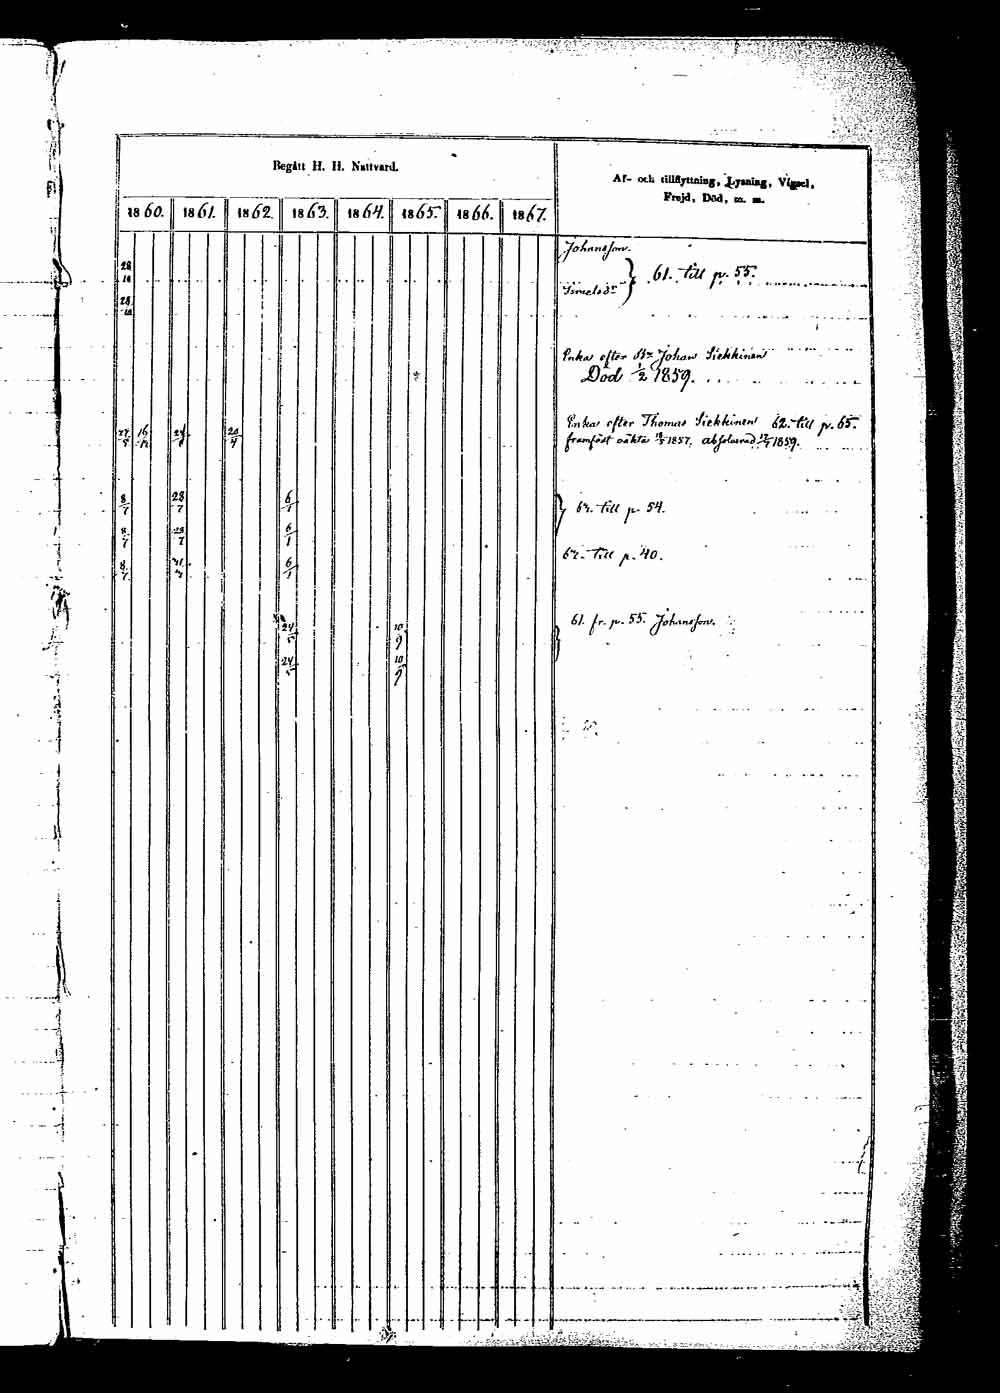 Begått H. H. Nattvard.
Af- och tillflyttning, Lysning, Vigsel,
Frejd, Död, m. m.
1860. 1861. 1862. 1863. 1864. 1865. 1866. 1867.
Johansson.
28/10
61. till p. 55.
28/10
Enka efter Johan Siekkinen
Död 1/2 1859.
Enka efter Thomas Siekkinen 62. till p. 65.
16 20/4
1857. absolverad 1859.
8/7 28/7 6/1
till p. 54.
8/7 28/7 6/1
till p. 40.
8/7 6/1
61. fr. p. 55. Johansson.
24/5 10/9
24/5 10/9